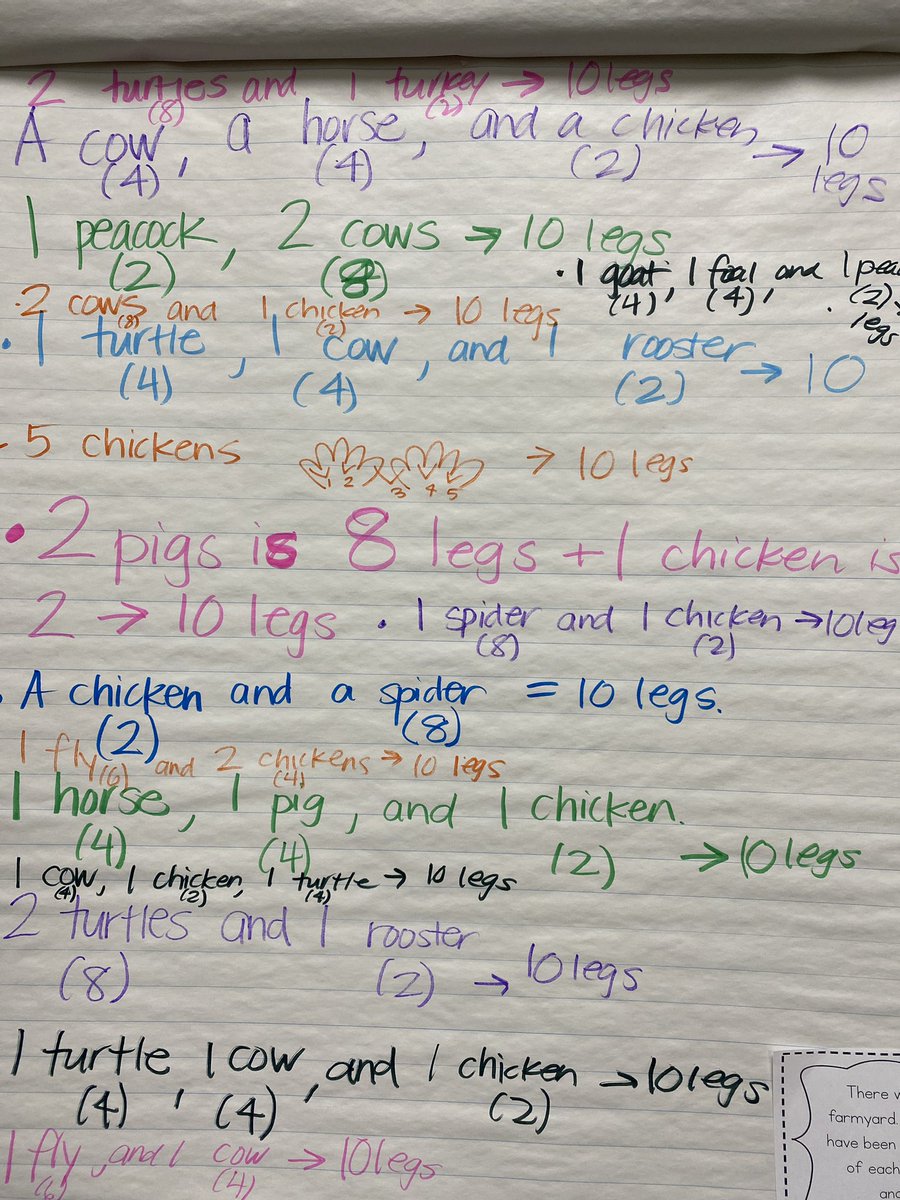 2 turtles and 1 turkey → 10 legs
(8) (2)
A cow, a horse, and a chicken → 10 legs
(4) (4) (2)
1 peacock, 2 cows → 10 legs
(2) (8)
· 1 goat, 1 foal and 1
(4) (4) (2)
legs
· 2 cows and 1 chicken → 10 legs
(8) (2)
· 1 turtle, 1 cow, and 1 rooster → 10
(4) (4) (2)
- 5 chickens → 10 legs
1 2 3 4 5
· 2 pigs is 8 legs + 1 chicken is
2 → 10 legs
· 1 spider and 1 chicken → 10 leg
(8) (2)
· A chicken and a spider = 10 legs.
(2) (8)
1 fly and 2 chickens → 10 legs
(6) (4)
1 horse, 1 pig, and 1 chicken.
(4) (4) (2) → 10 legs
1 cow, 1 chicken, 1 turtle → 10 legs
(4) (2) (4)
2 turtles and 1 rooster
(8) (2) → 10 legs
1 turtle, 1 cow, and 1 chicken → 10 legs
(4) (4) (2)
1 fly, and 1 cow → 10 legs
(6) (4)
There
farmyard.
have been
of each
and